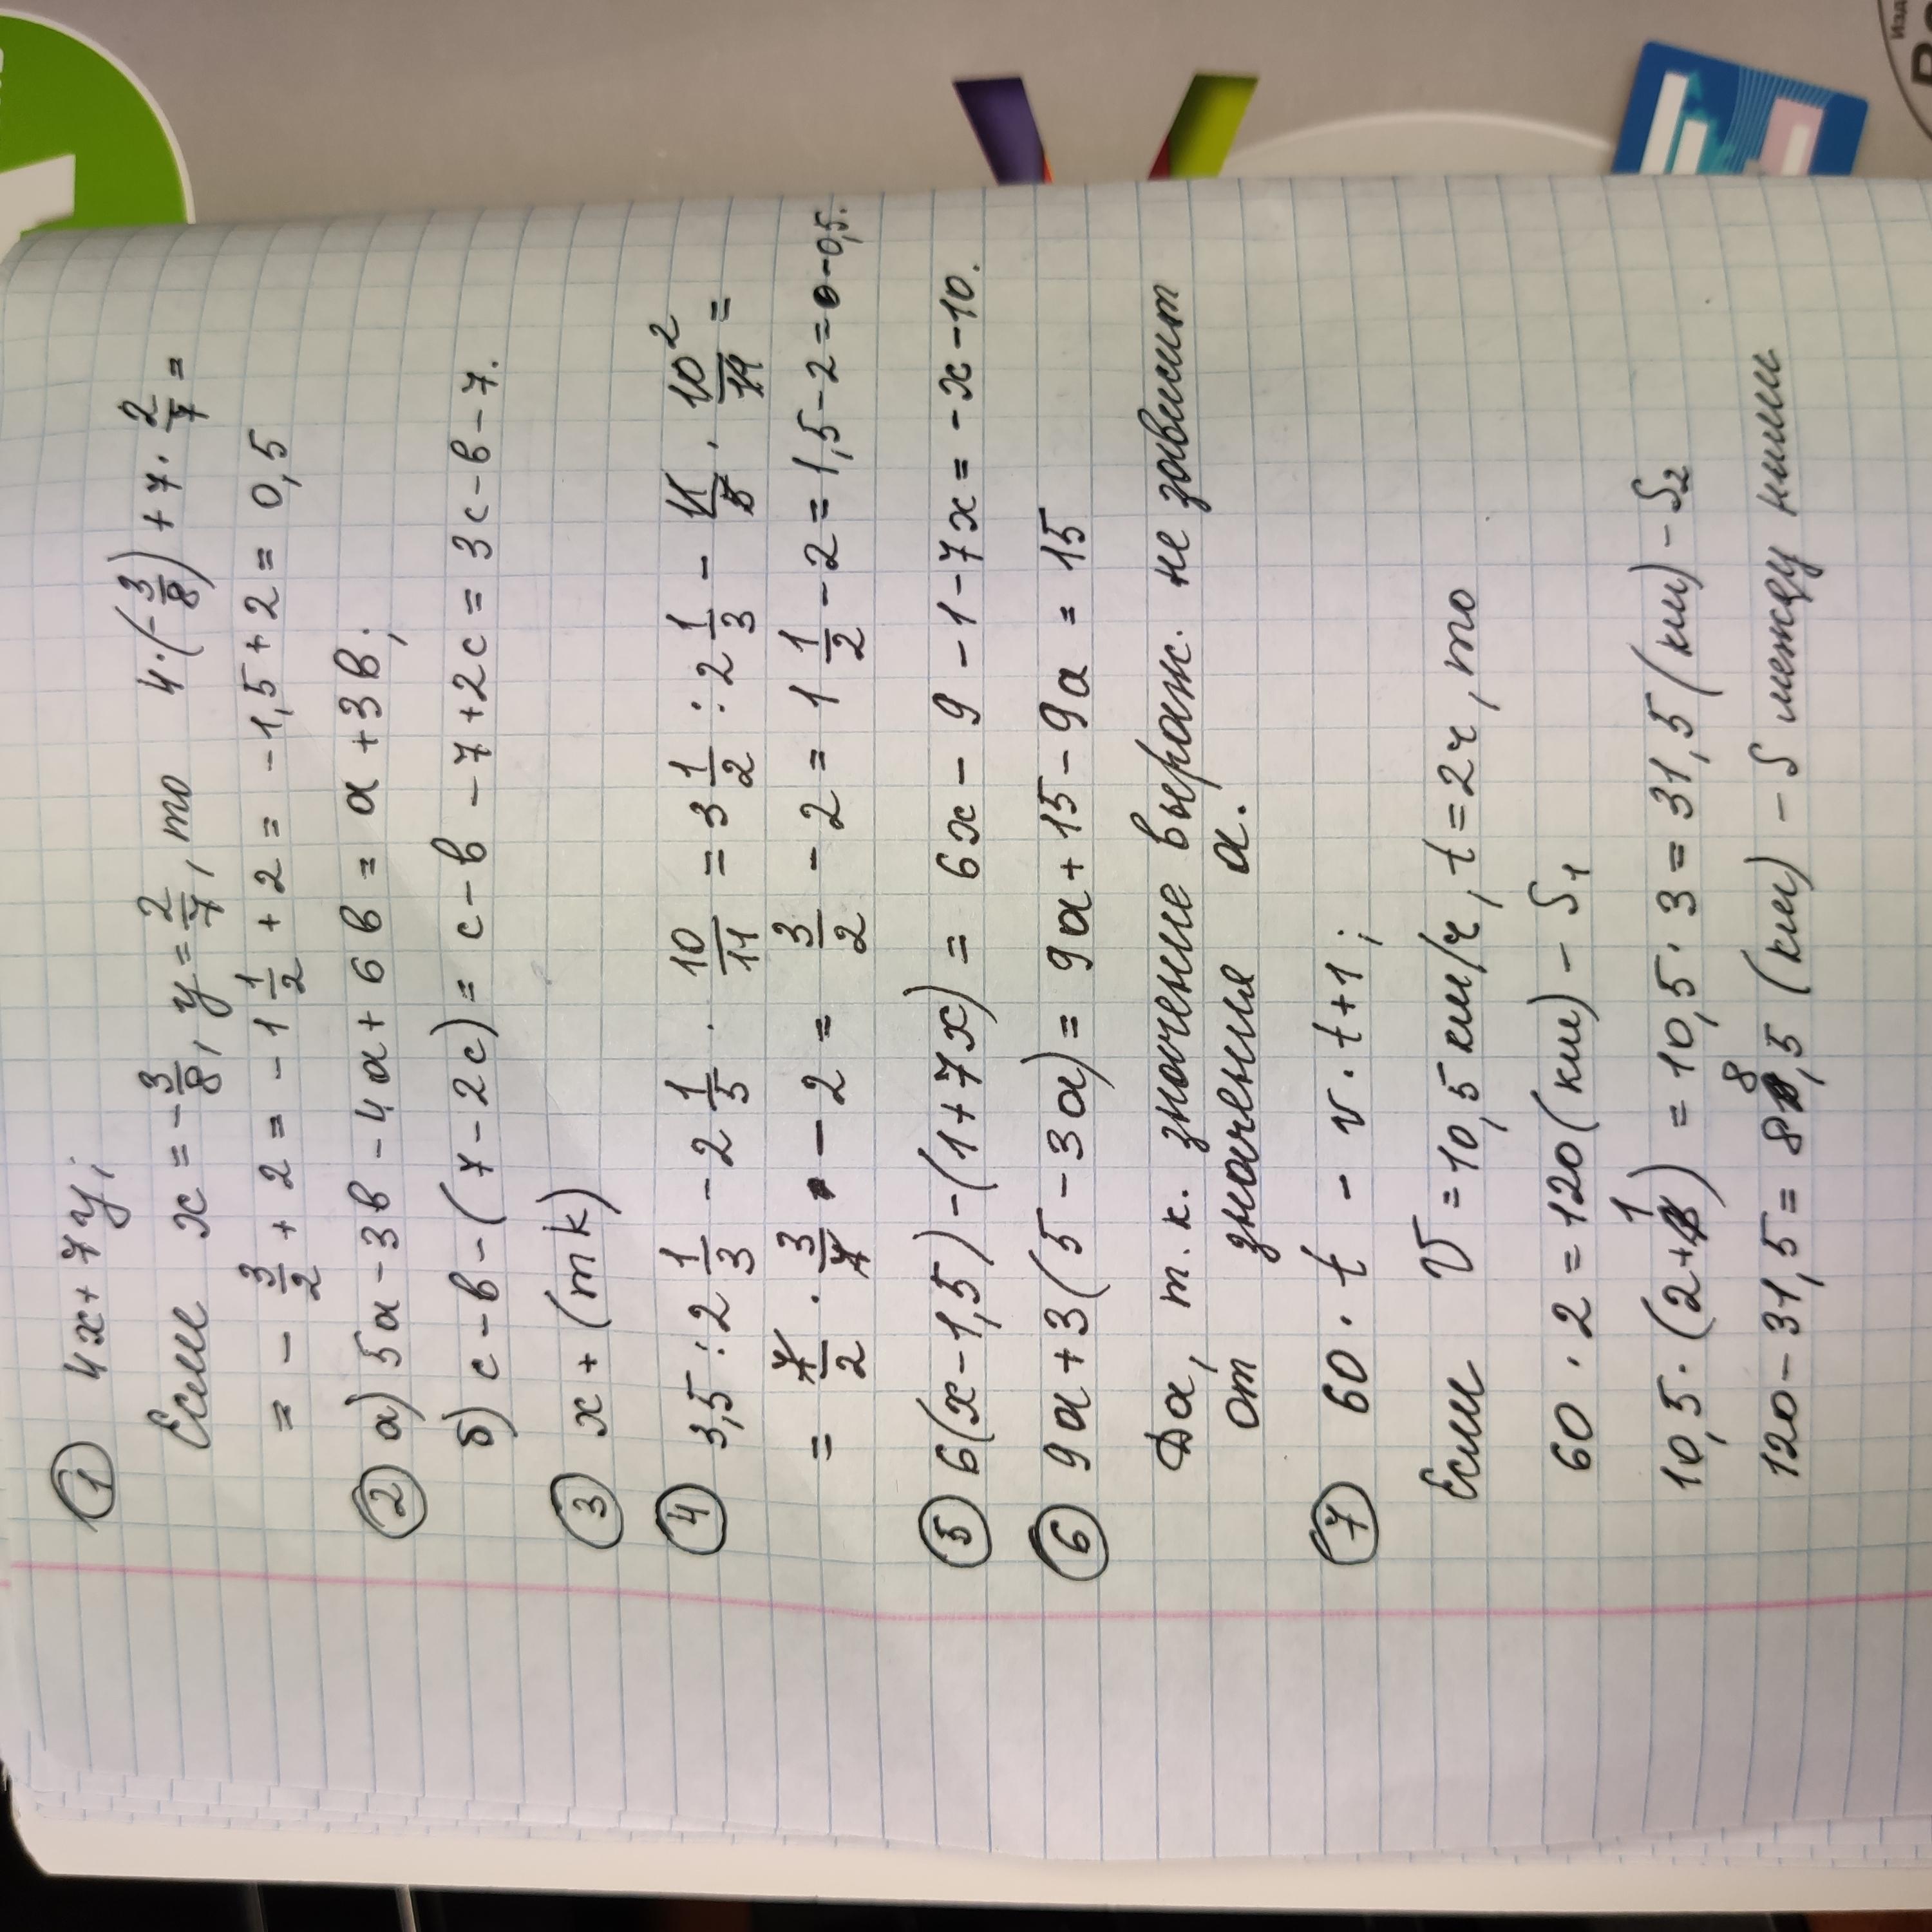 ① 4x+7y;
Если x=-3/8, y=2/7, то 4·(-3/8)+7·2/7=
=-3/2+2=-1 1/2+2=-1,5+2=0,5
② а) 5a-3в-4a+6в=a+3в;
б) c-в-(7-2c)=c-в-7+2c=3c-в-7.
③ x+(mk)
④ 3,5:2 1/3-2 1/5·10/11=3 1/2:2 1/3-11/5·10²/11=
=7/2·3/7-2=3/2-2=1 1/2-2=1,5-2=-0,5.
⑤ 6(x-1,5)-(1+7x)=6x-9-1-7x=-x-10.
⑥ 9a+3(5-3a)=9a+15-9a=15
Да, т.к. значение выраж. не зависит
от значения a.
⑦ 60·t-v·t+1;
Если V=10,5 км/ч, t=2ч, то
60·2=120(км)-S₁
10,5·(2+1)=10,5·3=31,5(км)-S₂
120-31,5=88,5(км)-S между ними